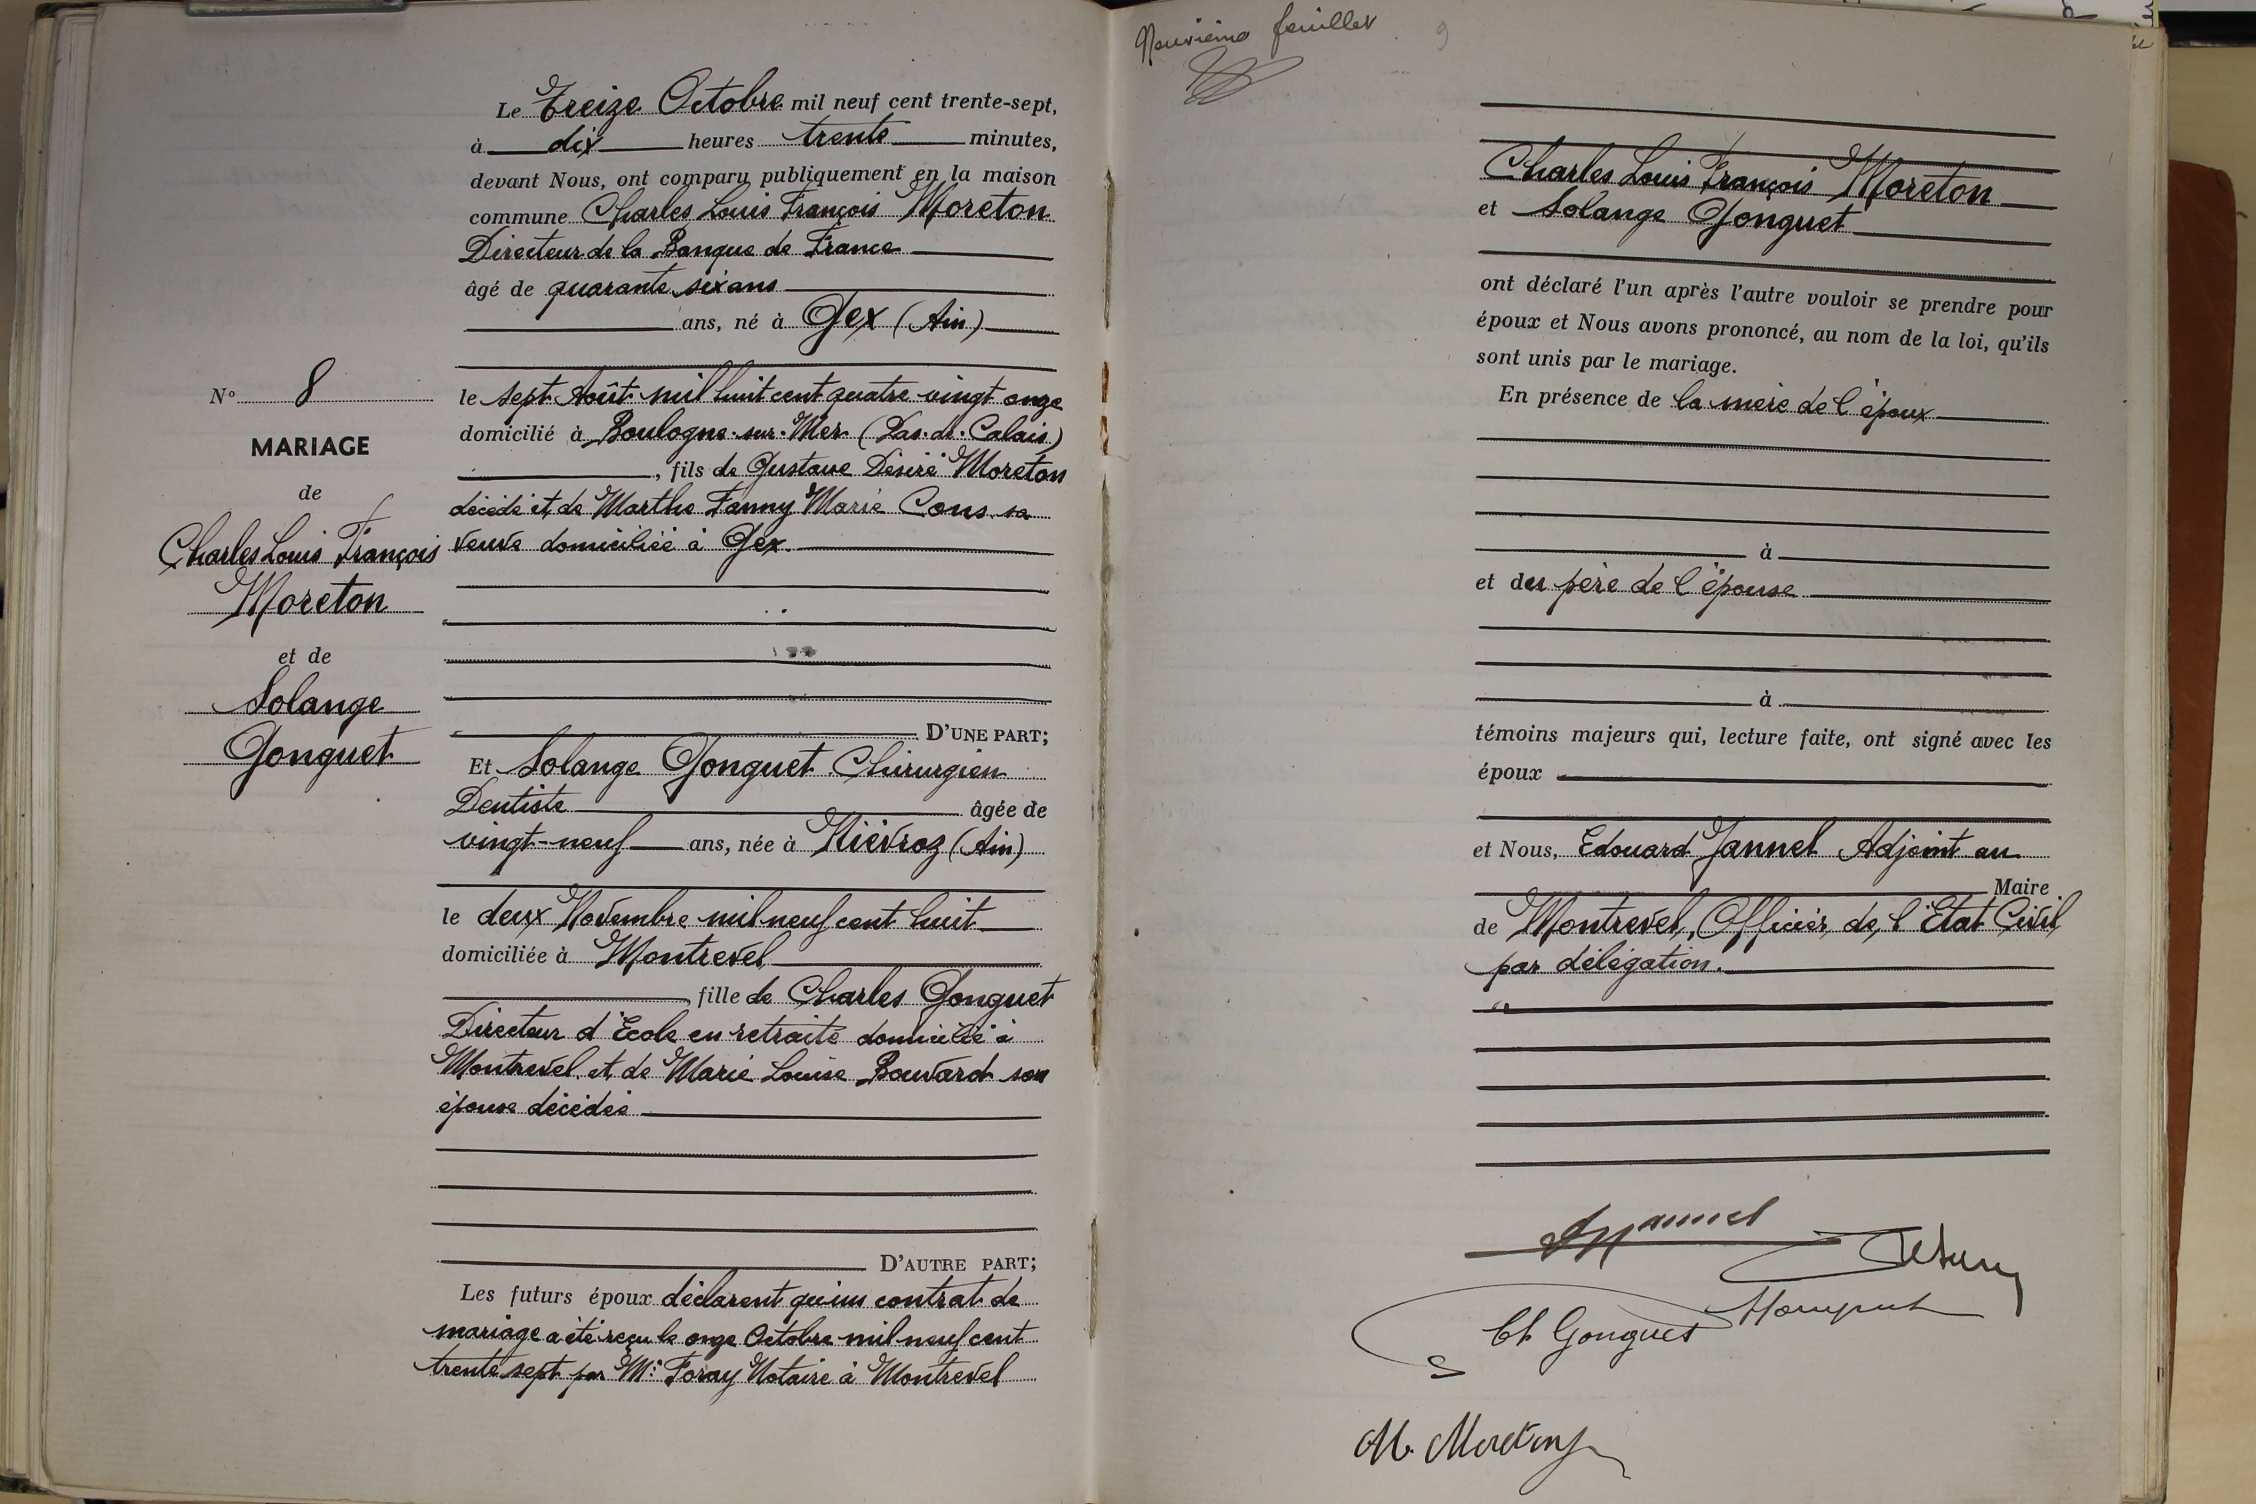 Le Treize Octobre mil neuf cent trente-sept,
à dix heures trente minutes,
devant Nous, ont comparu publiquement en la maison
commune Charles Louis François Moreton
Directeur de la Banque de France
âgé de quarante six ans
ans, né à Gex (Ain)
le sept Août mil huit cent quatre vingt onze
domicilié à Boulogne-sur-Mer (Pas-de-Calais)
, fils de Gustave Désiré Moreton
décédé et de Marthe Fanny Marie Cons sa
veuve domiciliée à Gex.
D'UNE PART;
Et Solange Gonguet Chirurgien
Dentiste âgée de
vingt-neuf ans, née à Niévroz (Ain)
le deux Novembre mil neuf cent huit
domiciliée à Montrevel
, fille de Charles Gonguet
Directeur d'Ecole en retraite domicilié à
Montrevel et de Marie Louise Bouvard son
épouse décédée
D'AUTRE PART;
Les futurs époux déclarent qu'un contrat de
mariage a été reçu le onze Octobre mil neuf cent
trente sept par Me Foray Notaire à Montrevel
N° 8
MARIAGE
de
Charles Louis François
Moreton
et de
Solange
Gonguet
Neuvième feuillet 9
Charles Louis François Moreton
et Solange Gonguet
ont déclaré l'un après l'autre vouloir se prendre pour
époux et Nous avons prononcé, au nom de la loi, qu'ils
sont unis par le mariage.
En présence de la mère de l'époux
à
et du père de l'épouse
à
témoins majeurs qui, lecture faite, ont signé avec les
époux
et Nous, Edouard Jannel Adjoint au
Maire
de Montrevel, Officier de l'Etat Civil
par délégation.
Jannel
Ch Gonguet
M. Moreton